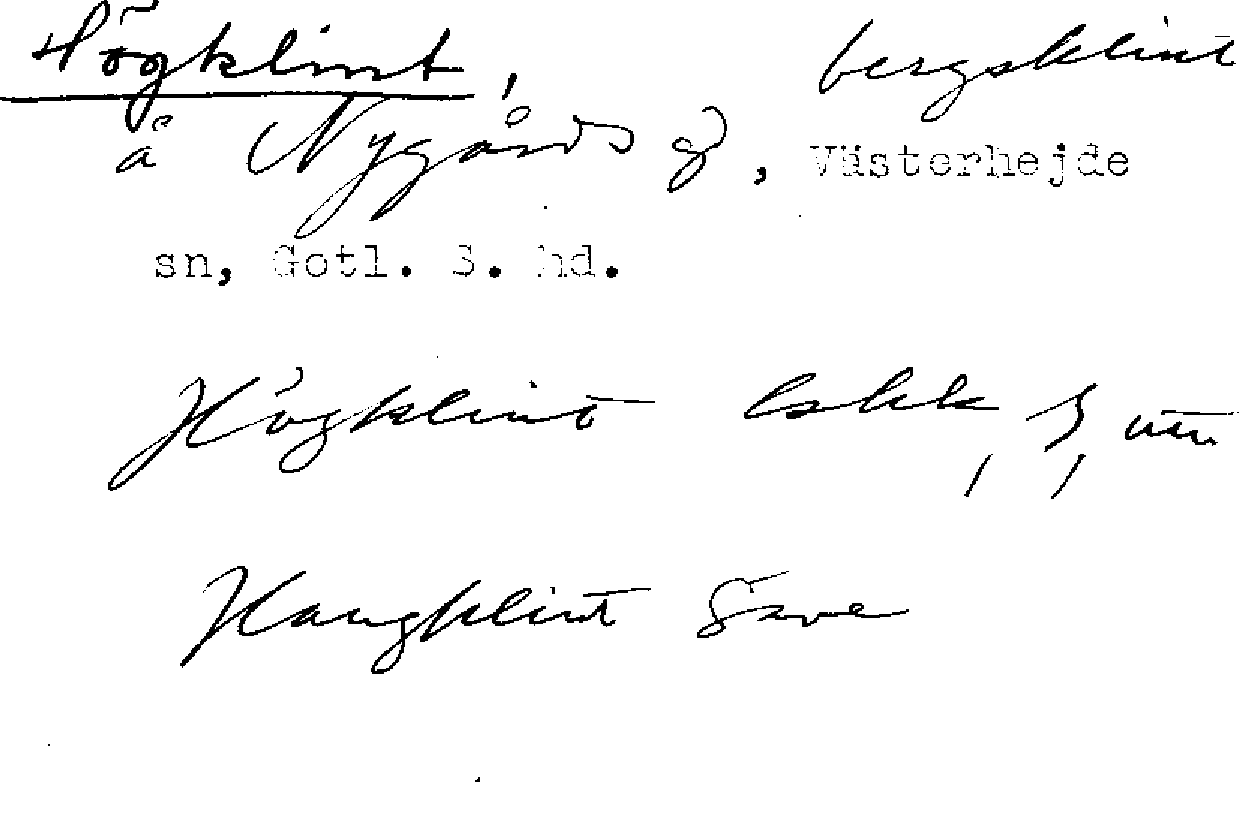 Högklint, bergsklint
å Nygårds g, Västerhejde
sn, Gotl. S. hd.
Högklint
Haugklint Säve